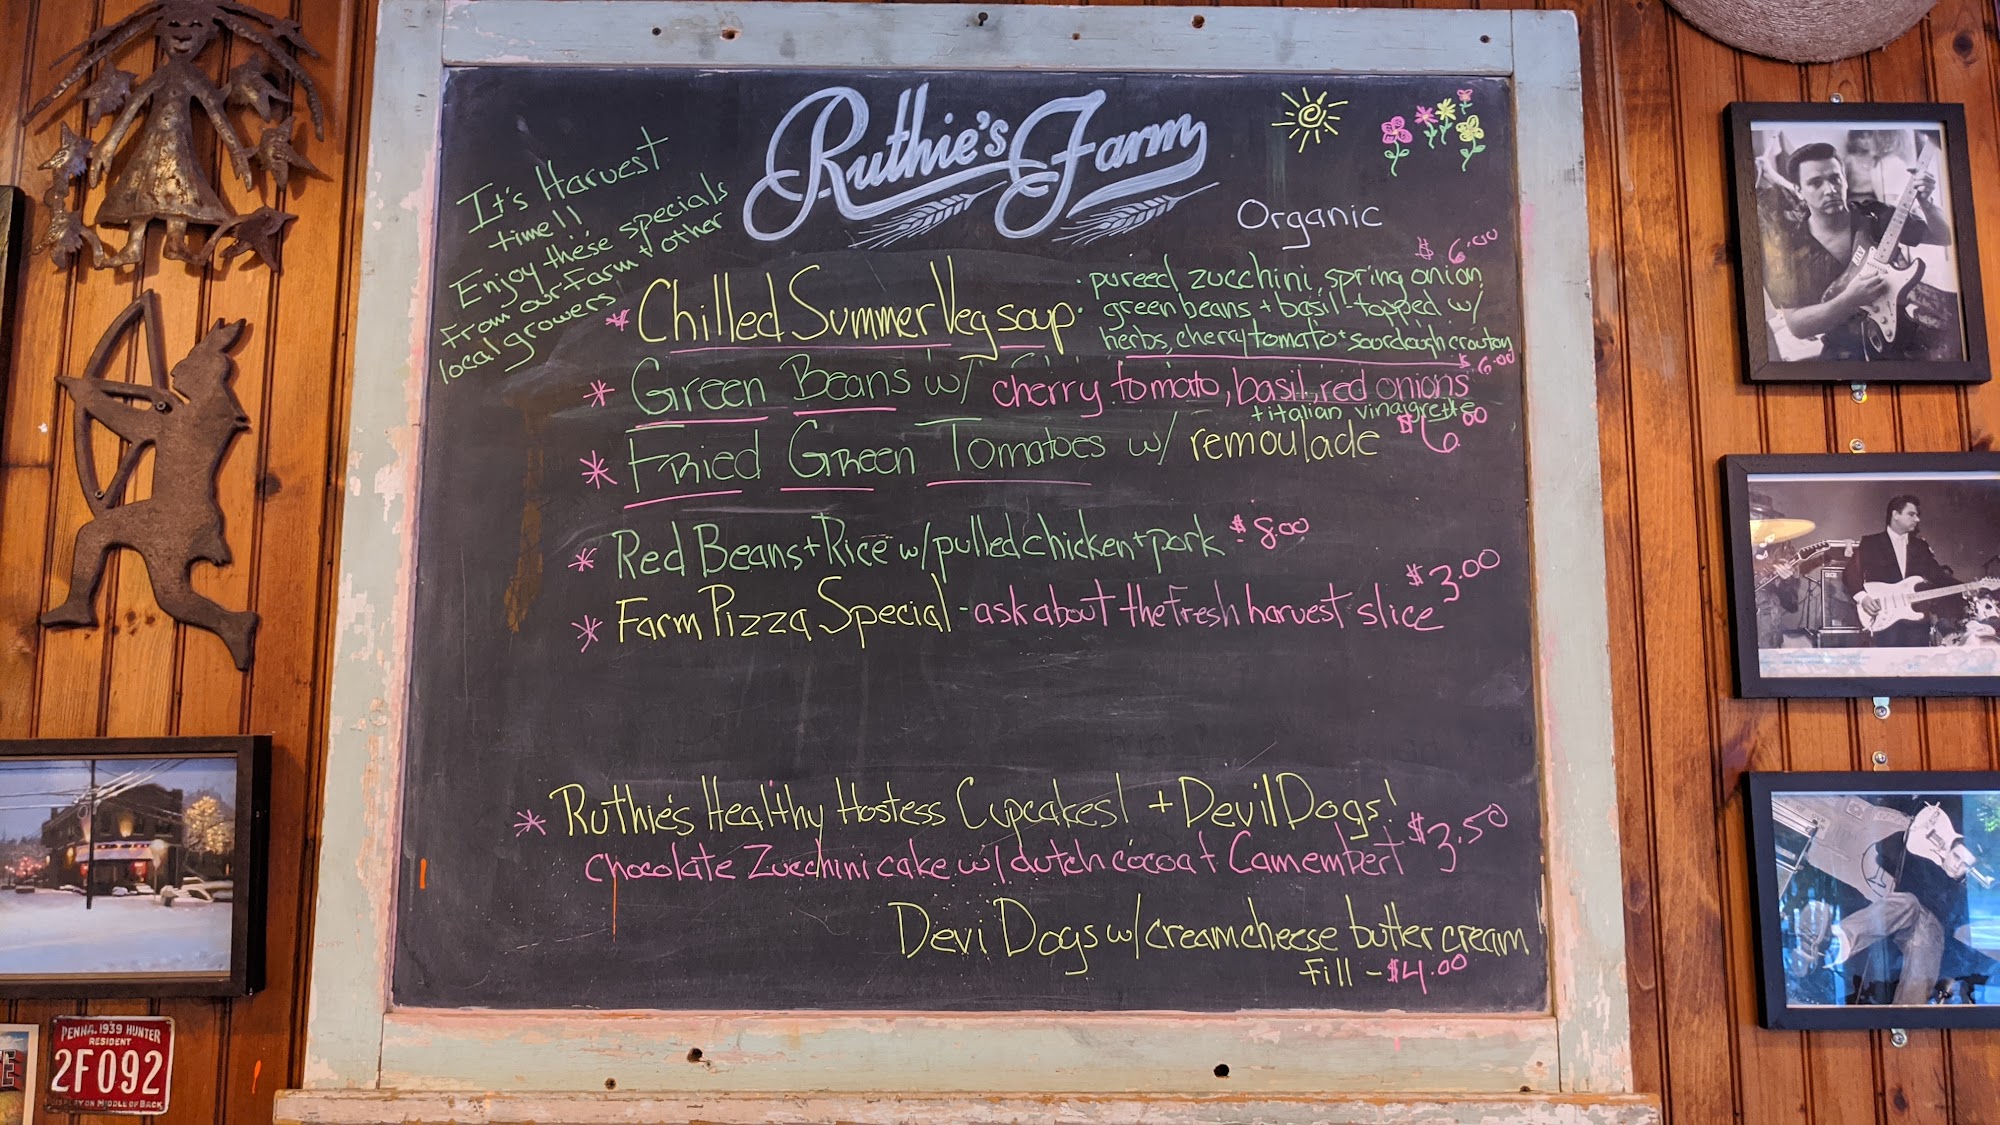 Ruthie's Farm
Organic
It's Harvest
time!!
Enjoy these specials
From our Farm + other
local growers!
* Chilled Summer Veg soup · pureed zucchini, spring onion $6.00
· green beans + basil - topped w/
herbs, cherry tomato + sourdough crouton
* Green Beans w/ cherry tomato, basil, red onions $6.00
+ italian vinaigrette
* Fried Green Tomatoes w/ remoulade $6.00
* Red Beans + Rice w/ pulled chicken + pork $8.00
* Farm Pizza Special - ask about the fresh harvest slice $3.00
* Ruthie's Healthy Hostess Cupcakes! + Devil Dogs!
Chocolate Zucchini cake w/ dutch cocoa + Camembert $3.50
Devi Dogs w/ creamcheese butter cream
fill - $4.00
PENNA. 1939 HUNTER
RESIDENT
2F092
DISPLAY ON MIDDLE OF BACK